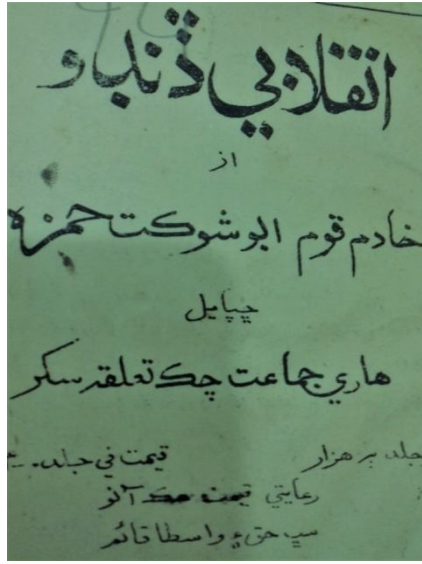 انقلابي ڏنڊو
از
خادم قوم ابو شوڪت حمزه
ڇپايل
هاري جماعت چڪ تعلقه سکر
جلد ٻه هزار
قيمت في جلد
رعايتي قيمت هڪ آنو
سڀ حق ۽ واسطا قائم